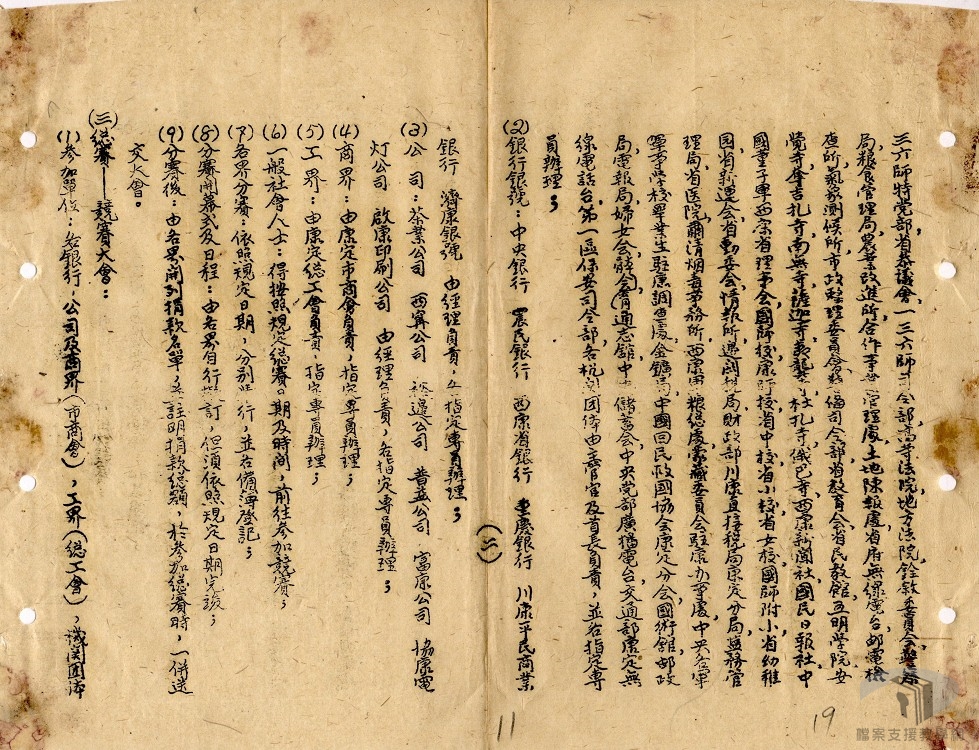 三六師特党部省參議會一三六師司令部高等法院地方法院銓敘委員會警察
局粮食管理局農業改進所合作事業管理處土地陳報處省府無線電台郵電檢
查所氣象測候所市政整理委員會 司令部省教育會省民教館五明學院安
覺寺 吉扎寺南無寺 寺 杜扎寺俄巴寺西康新聞社國民日報社中
國童子軍西康省理事會國師校康師校省中校省小校省女校國師附小省幼稚
園省新運會省動委會情報所 局財政部川康直接税局康定分局鹽務管
理局省医院肅清烟毒事務所西康軍粮總處蒙藏委員會駐康办事處中央各軍
軍事學校畢業生駐康調查處金鑛局中國回民救國協會康定分會國術館郵政
局電報局婦女會 會通志館中央儲蓄會中央党部廣播電台交通部康定無
線電話台第一區保安司令部各机関团体由主官及首長負責,並各指定專
員辦理;
(二)
(2)銀行銀號:中央銀行 農民銀行 西康省銀行 重慶銀行 川康平民商業
銀行 濟康銀號 由經理負責,各指定專員辦理;
(3)公 司:茶業公司 西寧公司 公司 公司 富康公司 協康電
灯公司 啟康印刷公司 由經理負責,各指定專員辦理;
(4)商界:由康定市商會負責,指定專員辦理;
(5)工界:由康定總工會負責,指定專員辦理;
(6)一般社會人士:得按照規定總賽日期及時間,前往參加競賽;
(7)各界分賽:依照規定日期,分別举行,並各備簿登記;
(8)分賽開幕式及日程:由各界自行擬訂,但須依照規定日期完竣;
(9)分賽後:由各界開列捐款名單,並註明捐款總額,於參加總賽時,一併送
交大會。
(三)總賽——競賽大會:
(1)參加單位:各銀行、公司及商界(市商會),工界(總工會),機関团体
11
19
檔案支援教學網